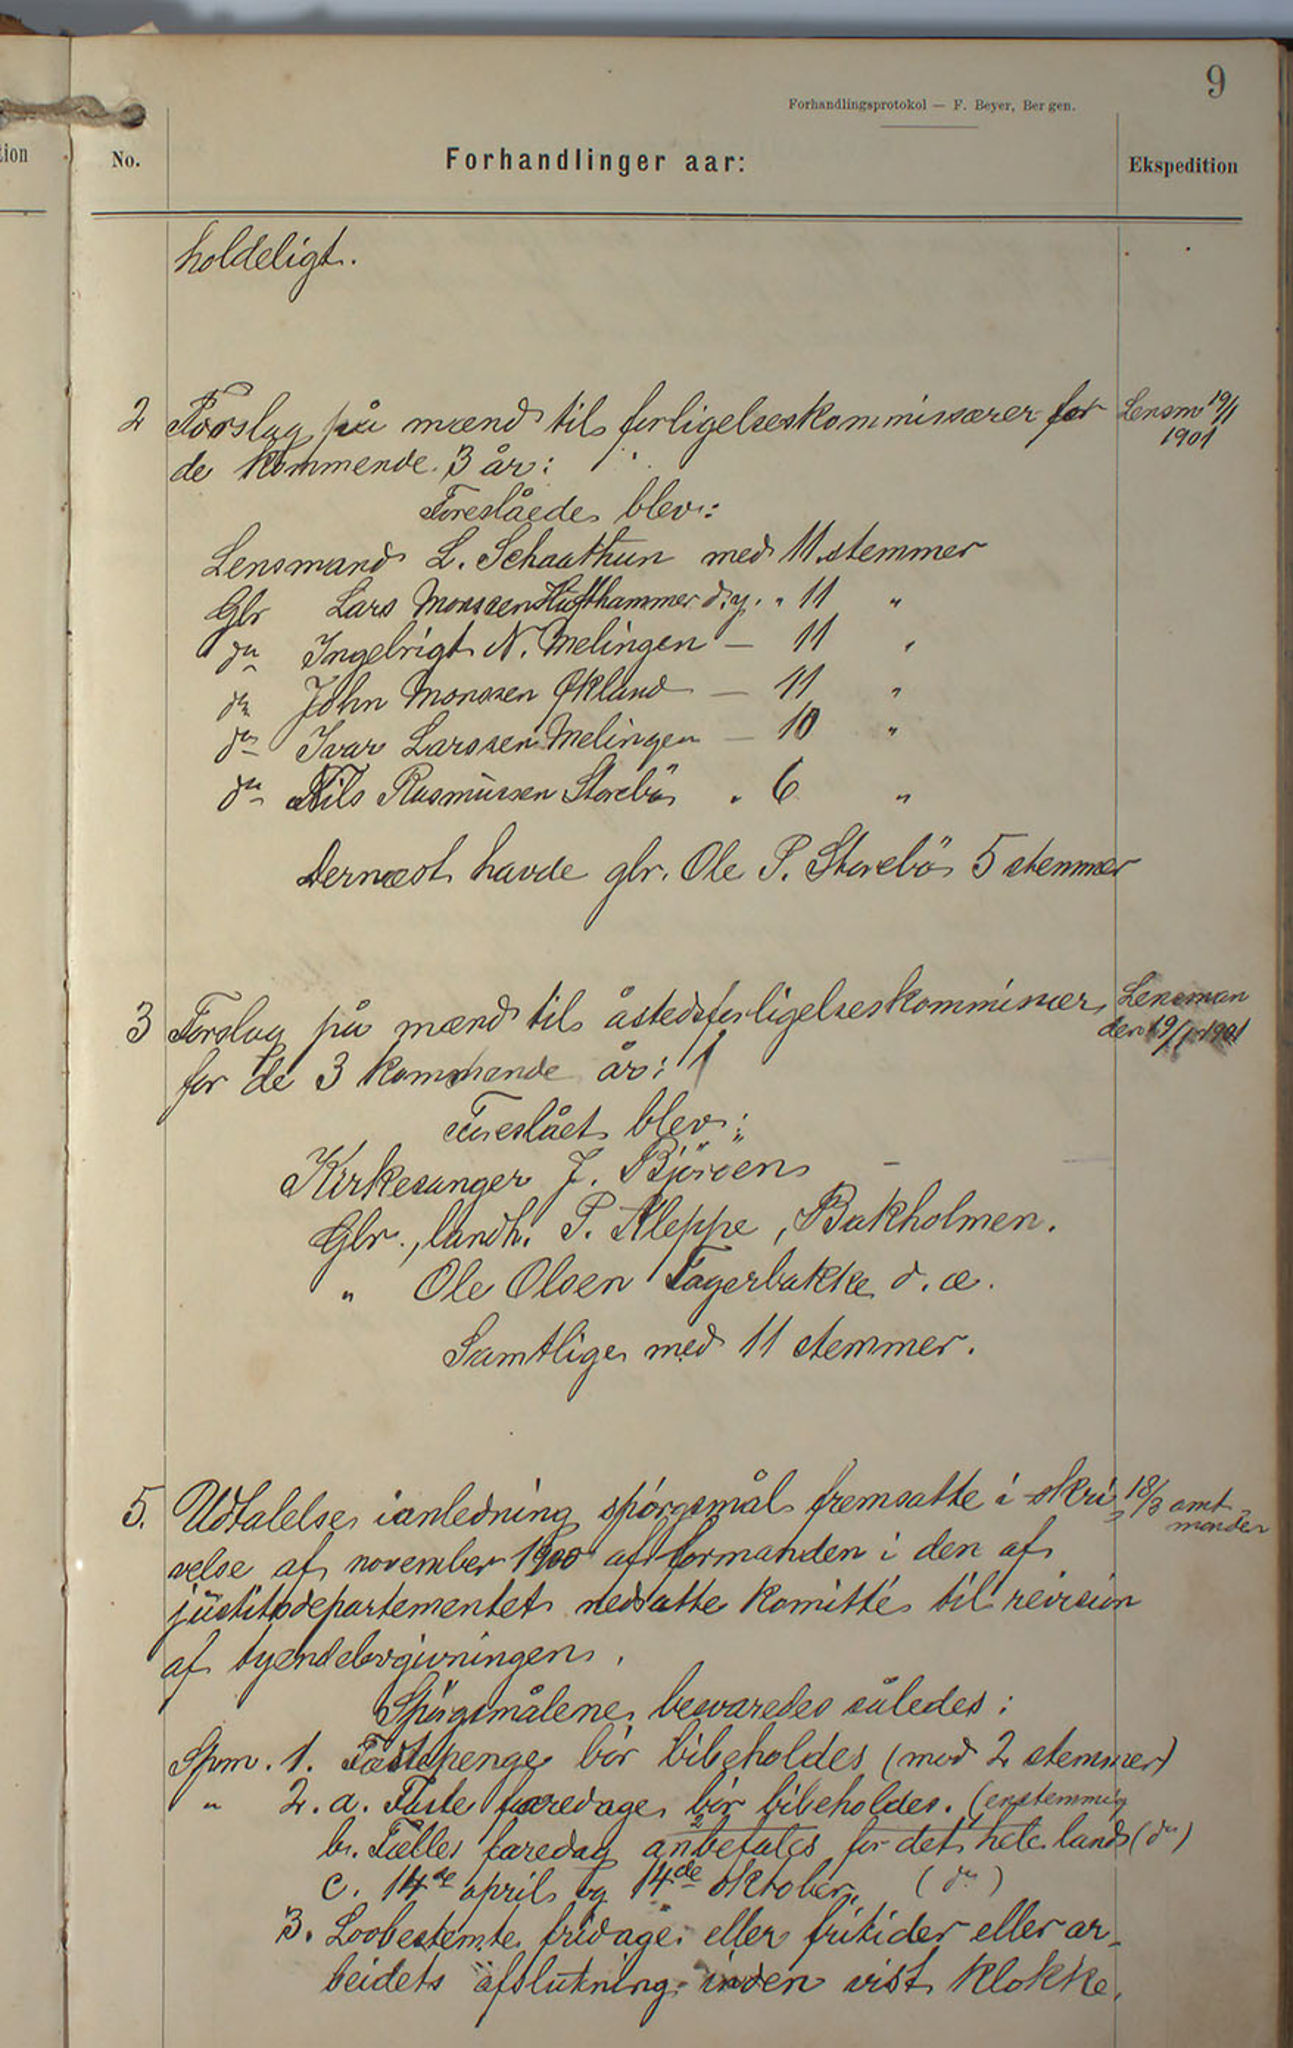 9
Forhandlingsprotokol — F. Beyer, Bergen.
tion
No.
Forhandlinger aar:
Ekspedition
holdeligt.
2 Forslag på mænd til forligelseskommissærer for
Lensm 19/1
1901
de kommende 3 år:
Foreslåede blev:
Lensmand L. Schaathun med 11 stemmer
Gbr Lars Monssen Hufthammer d.y. " 11 "
do Ingebrigt N. Melingen — 11 "
do John Monssen Økland — 11 "
do Ivar Larssen Melingen — 10 "
do Nils Rasmussen Storebö " 6 "
Dernæst havde gbr. Ole P. Storebö 5 stemmer
3 Forslag på mænd til åstedsforligelseskommissær
Lensman
den 19/1 1901
for de 3 kommende år:
Foreslået blev:
Kirkesanger J. Björöen
Gbr., landh. P. Kleppe, Bakholmen.
" Ole Olsen Fagerbakke d. æ.
Samtlige med 11 stemmer.
5. Udtalelse i anledning spörgsmål fremsatte i skri-
18/3 amt-
manden
velse af november 1900 af formanden i den af
justitsdepartementet nedsatte komitté til revision
af tyendelovgivningen.
Spörgsmålene besvaredes således:
Spm. 1. Fæstepenge bör bibeholdes (mod 2 stemmer)
" 2. a. Faste faredage bör bibeholdes. (enstemmig
b. Fælles faredag anbefales for det hele land (do)
c. 14de april og 14de oktober. (do)
3. Lovbestemte fridage eller fritider eller ar-
beidets afslutning inden vist klokke.